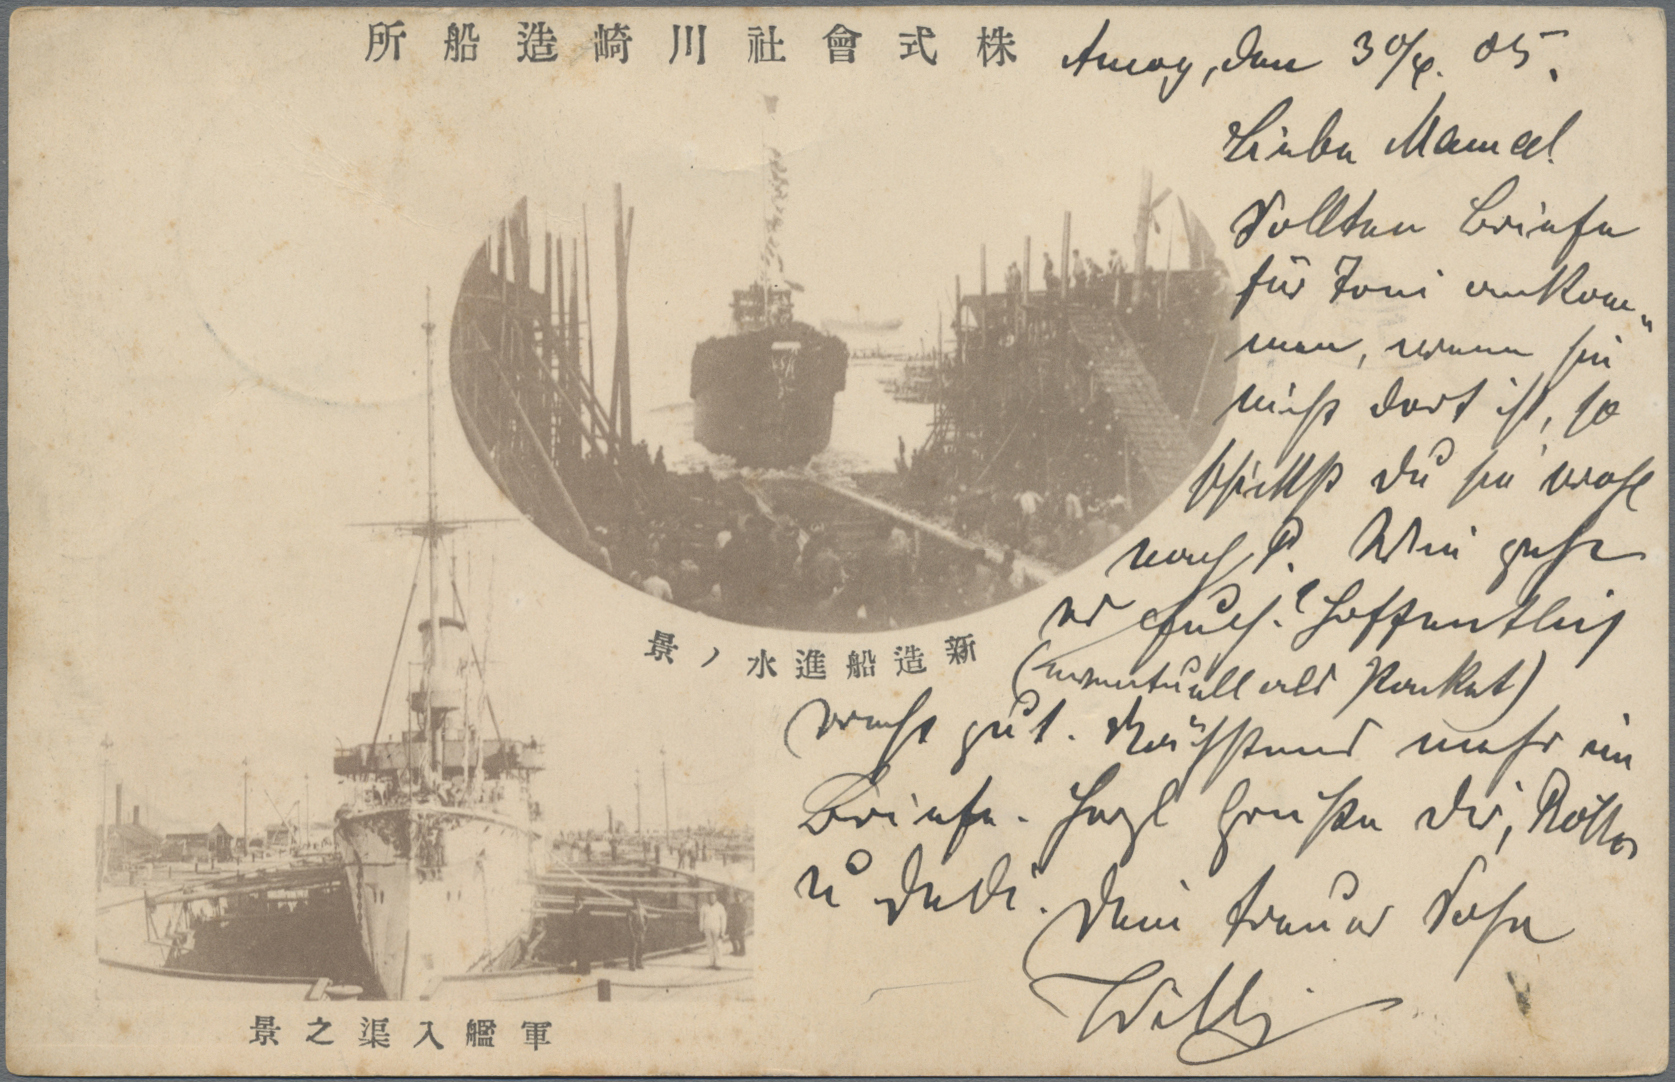 所船造崎川社會式株
Amoy, den 30/4. 05.
Liebe Mama!
Sollten Briefe
für Toni ankom-
men, wenn sie
nicht dort ist, so
schickst Du sie wohl
nach P. Wie geht
es Euch? Hoffentlich
(eventuell als Paket)
recht gut. Nächstens mehr im
Briefe. Herzl Grüße Dir,
u Dedi. Dein treuer Sohn
Willy
景ノ水進船造新
景之渠入艦軍